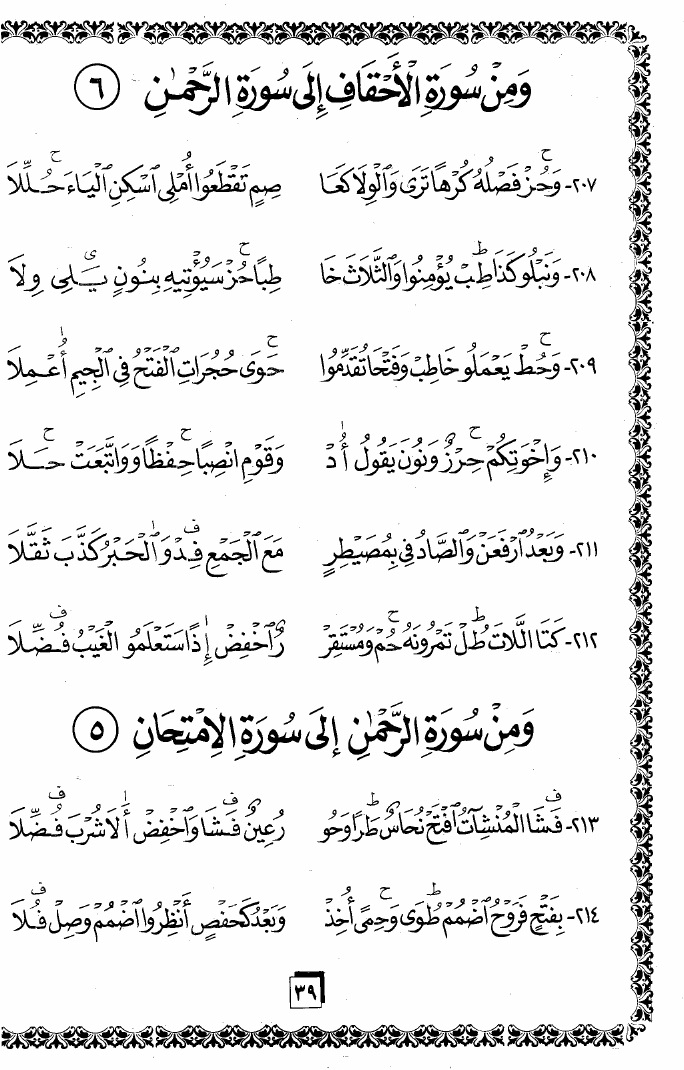 وَمِنْ سُورَةِ الْأَحْقَافِ إِلَى سُورَةِ الرَّحْمٰنِ ٦
٢٠٧- وَحُزْ فَصْلُهُ كُرْهًا تَرَى وَالْوِلَا كَعَا صِمٍ تَقْطَعُوا أُمْلِي اسْكِنِ الْيَاءَ حُلِّلَا
٢٠٨- وَنَبْلُو كَذَا طِبْ يُؤْمِنُوا وَالثَّلَاثَ خَا طِبًا حُزْ سَيُؤْتِيهِ بِنُونٍ يَلِي وِلَا
٢٠٩- وَحُطْ يَعْمَلُو خَاطِبْ وَفَتْحَا تُقَدِّمُوا حَوَى حُجُرَاتِ الْفَتْحُ فِي الْجِيمِ أُعْمِلَا
٢١٠- وَإِخْوَتِكُمْ حِرْزٌ وَنُونَ يَقُولُ أُدْ وَقَوْمِ انْصِبًا حِفْظًا وَوَاتَّبَعَتْ حَلَا
٢١١- وَبَعْدُ ارْفَعَنْ وَالصَّادُ فِي بِمُصَيْطِرٍ مَعَ الْجَمْعِ فِدْ وَالْحَبْرُ كَذَّبَ ثَقَّلَا
٢١٢- كَتَا اللَّاتَ طُلْ تَمْرُونَهُ حُمْ وَمُسْتَقِرْ رٌ اخْفِضْ إِذًا سَتَعْلَمُو الْغَيْبُ فُضِّلَا
وَمِنْ سُورَةِ الرَّحْمٰنِ إِلَى سُورَةِ الِامْتِحَانِ ٥
٢١٣- فَشَا الْمُنْشِآتُ افْتَحْ نُحَاسٌ طَرًا وَحُو رُ عِينٌ فَشَا وَاخْفِضْ أَلَا شُرْبَ فُضِّلَا
٢١٤- بِفَتْحٍ فَرَوْحُ اضْمُمْ طُوَى وَحِمًى أُخِذْ وَبَعْدُ كَحَفْصٍ أَنْظِرُوا اضْمُمْ وَصِلْ فُلَا
٣٩